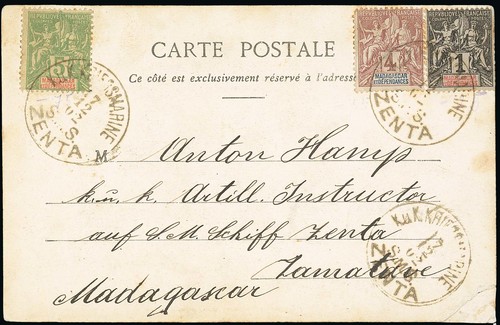 RÉPUBLIQUE FRANÇAISE RÉPUBLIQUE FRANÇAISE
5 4 1
MADAGASCAR ET DÉPENDANCES
CARTE POSTALE
Ce côté est exclusivement réservé à l'adresse
K.u.K. KRIEGSMARINE
S.M.S.
ZENTA
ZENTA
M Anton Hamp
k. u. k. Artill. Instructor
auf S. M. Schiff Zenta
Tamatave
Madagascar
K.u.K. KRIEGSMARINE
S.M.S.
ZENTA